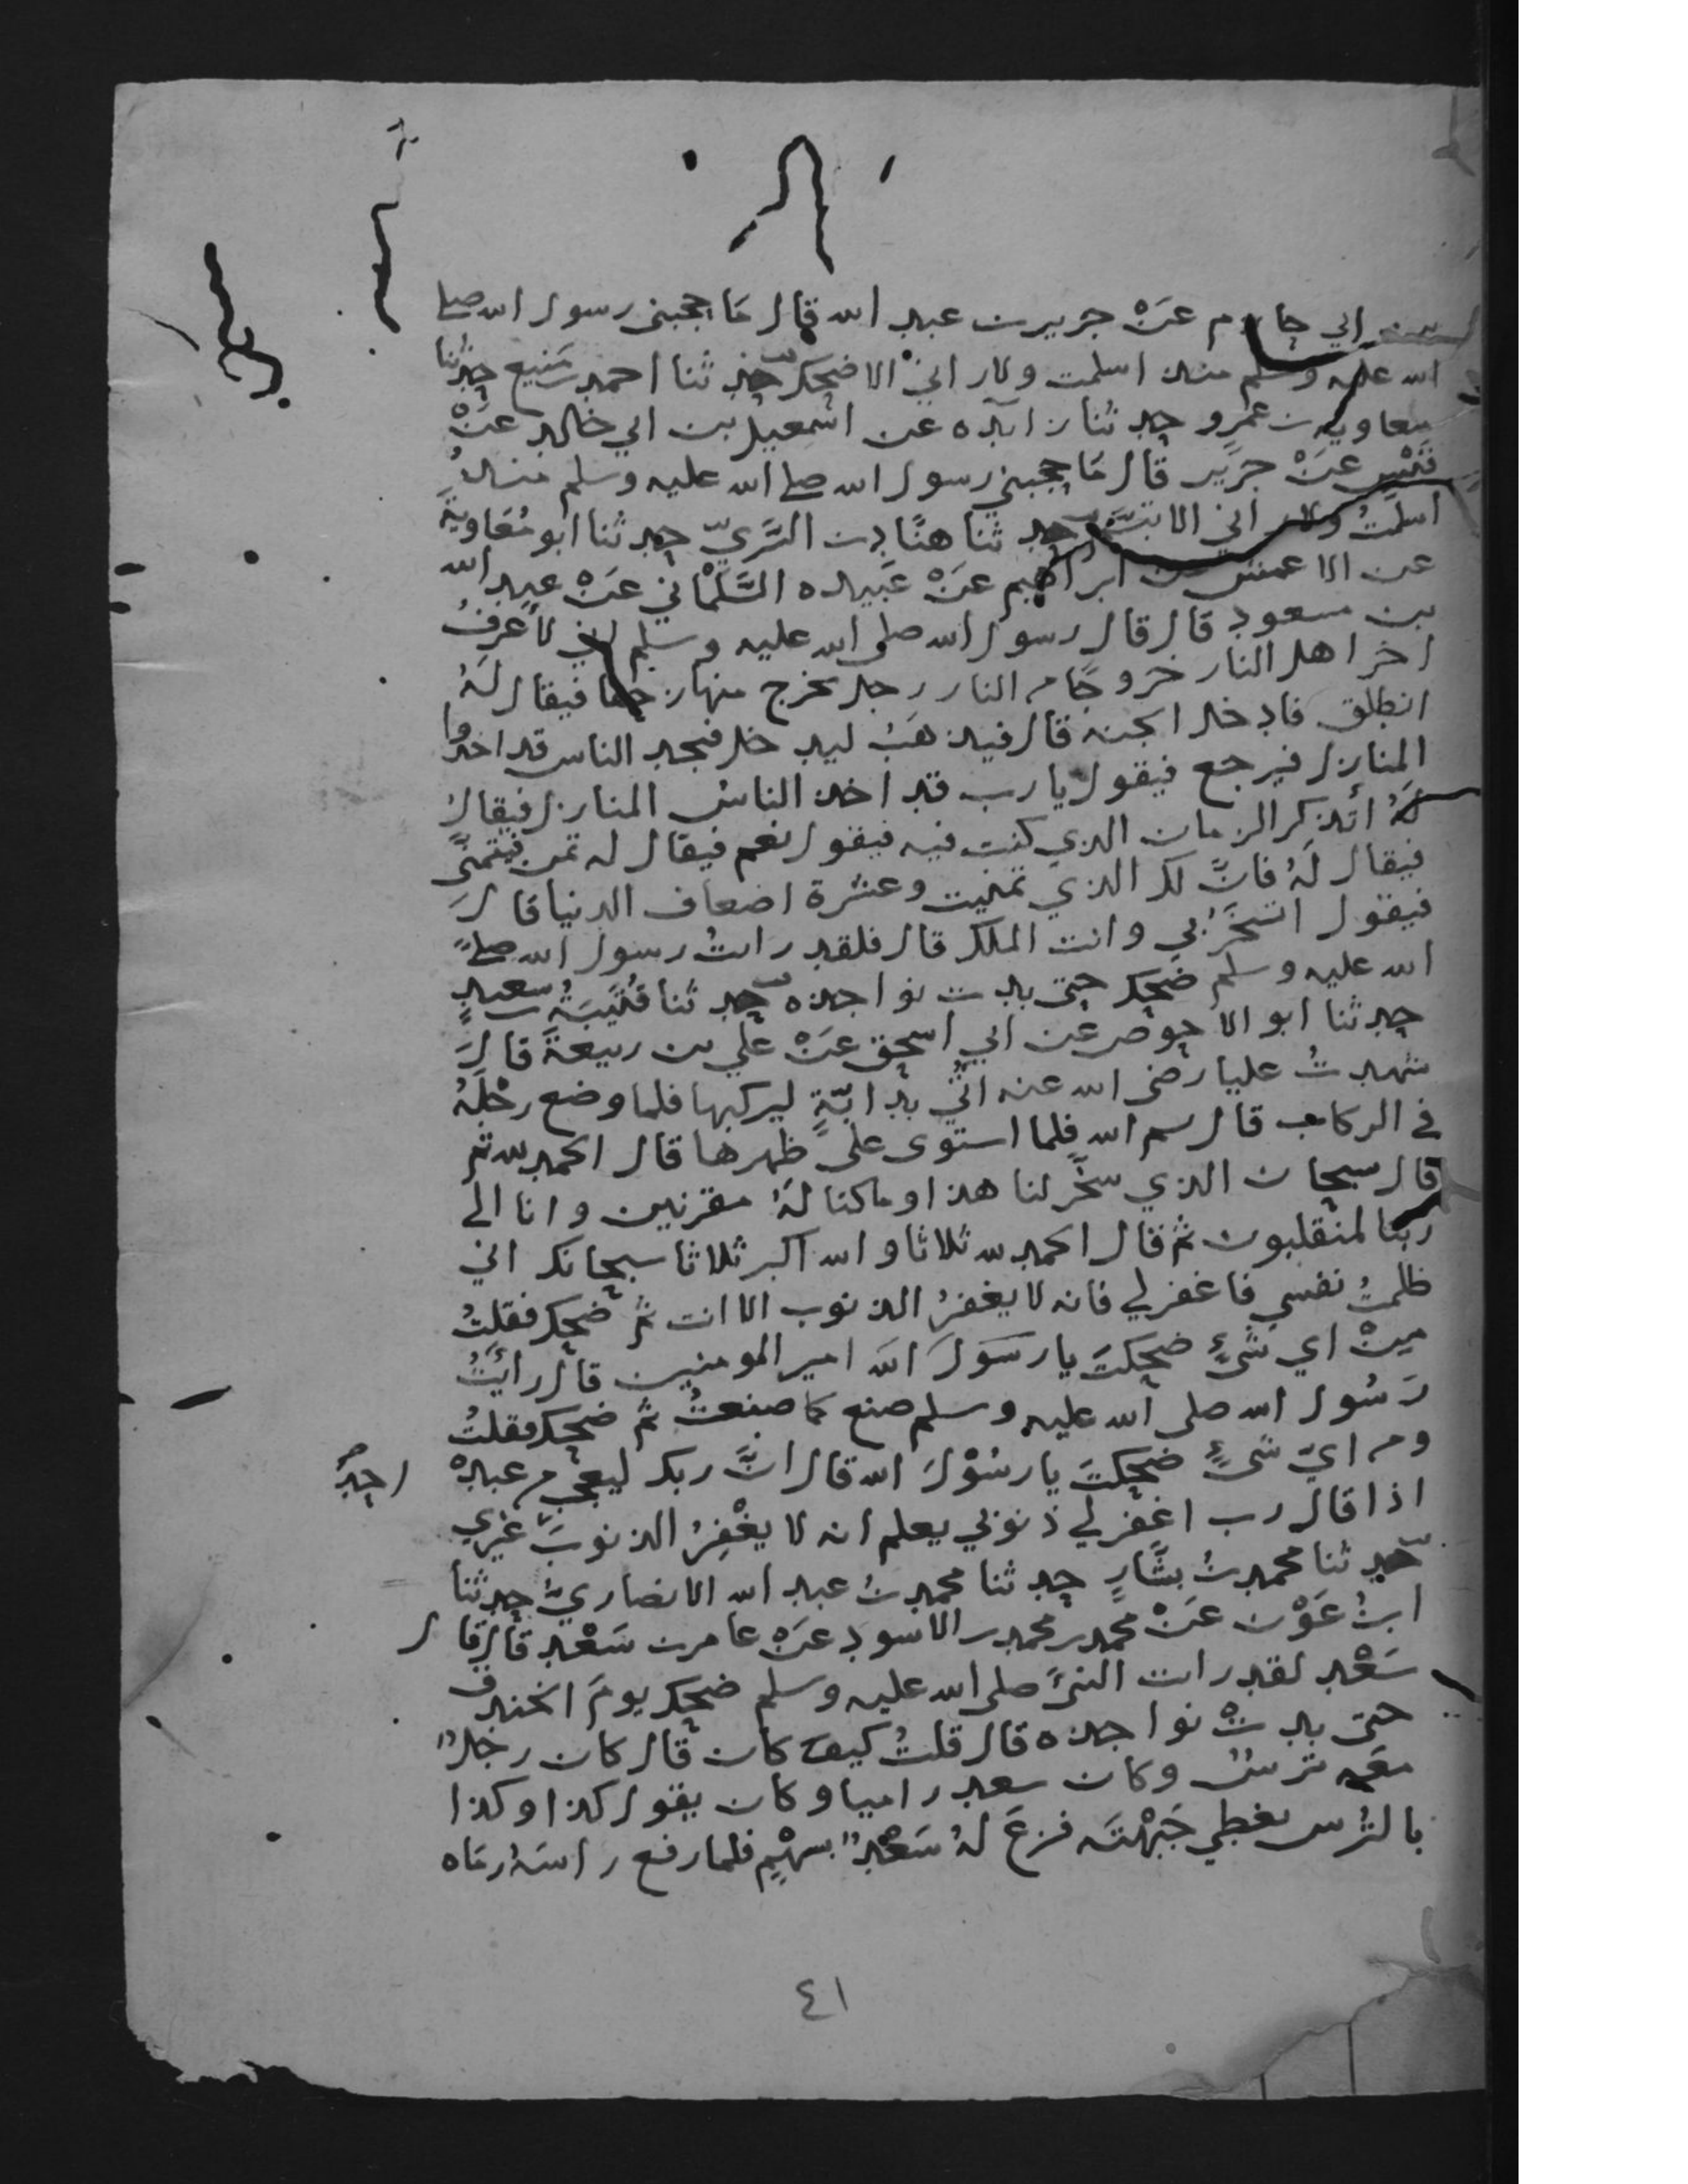 بن ابي حازم عَنْ جرير بن عبد الله قال مَا حجبني رسول الله صلى
الله عليه وسلم منذ اسلمت ولا راني الا ضحك حدثنا احمد بن مَنيع حدثنا
معاوية بن عَمرو حدثنا زائده عن اسمعيل بن ابي خالد عَنْ
قَيْس عَنْ جَرير قال مَا حجبني رسول الله صلى الله عليه وسلم منذُ
اسلمتُ ولا راني الا تبسَّم حدثنا هنَّاد بن السَّريّ حدثنا ابو مُعَاويَة
عن الاعمش عن ابراهيم عَنْ عَبيده السَّلْمَاني عَنْ عبد الله
بن مسعود قال قال رسول الله صلى الله عليه وسلم اني لأعرفُ
اخر اهل النار خروجًا من النار رجل يخرج منها زحفا فيقال لَهُ
انطلق فادخل الجنة قال فيذهَبُ ليدخل فيجد الناس قد اخذوا
المنازل فيرجع فيقول يا رب قد اخذ الناسُ المنازل فيقال
لَهُ اتذكر الزمان الذي كنت فيه فيقول نعم فيقال له تمن فيتمنَّى
فيقال لَهُ فانَّ لك الذي تمنيت وعشرة اضعاف الدنيا قالَ
فيقول اتسْخَرُ بي وانت الملك قال فلقد رايتُ رسول الله صلى
الله عليه وسلم ضحك حتى بدت نواجذه حدثنا قُتَيبَةُ بن سعيدٍ
حدثنا ابو الاحوص عن ابي اسحق عَنْ علي بن ربيعةَ قالَ
شهدتُ عليا رضي الله عنه اُتي بدابّةٍ ليركبها فلما وضع رجْلَهُ
في الركاب قال بسم الله فلما استوى على ظهرها قال الحمد لله ثم
قال سبحان الذي سخَّر لنا هذا وما كنا لَهُ مقرنين وانا الى
ربنا لمنقلبون ثم قال الحمد لله ثلاثا والله اكبر ثلاثا سبحانك اني
ظلمتُ نفسي فاغفر لي فانه لا يغفرُ الذنوب الا انت ثم ضحك فقلتُ
مِنْ اي شَيْءٍ ضحكتَ يا رسَولَ الله امير المومنين قال رأيتُ
رَسُول الله صلى الله عليه وسلم صنع كما صنعتُ ثم ضحك فقلتُ
ومن ايّ شَيْءٍ ضحكتَ يا رسُوْلَ الله قال انَّ ربك ليعجب من عبدهْ
اذا قال رب اغفر لي ذنوبي يعلم انه لا يغْفِرُ الذنوبَ غيري
احدٌ
حدثنا محمد بنُ بشَّارٍ حدثنا محمد بنُ عبد الله الانصاريُّ حدثنا
ابنُ عَوْن عَنْ محمد بن محمد بن الاسود عَنْ عامر بن سَعْد قال قال
سَعْد لقد رايت النبيَّ صلى الله عليه وسلم ضحك يومَ الخندق
حتى بدتْ نواجذه قال قلتُ كيف كان قال كان رجلٌ
معَه ترسٌ وكان سعد راميا وكان يقول كذا وكذا
بالتُرس يغطي جَبْهتَه فنزعَ لهُ سَعْدٌ بسهْمٍ فلما رفع راسَهُ رمَاه
٤١